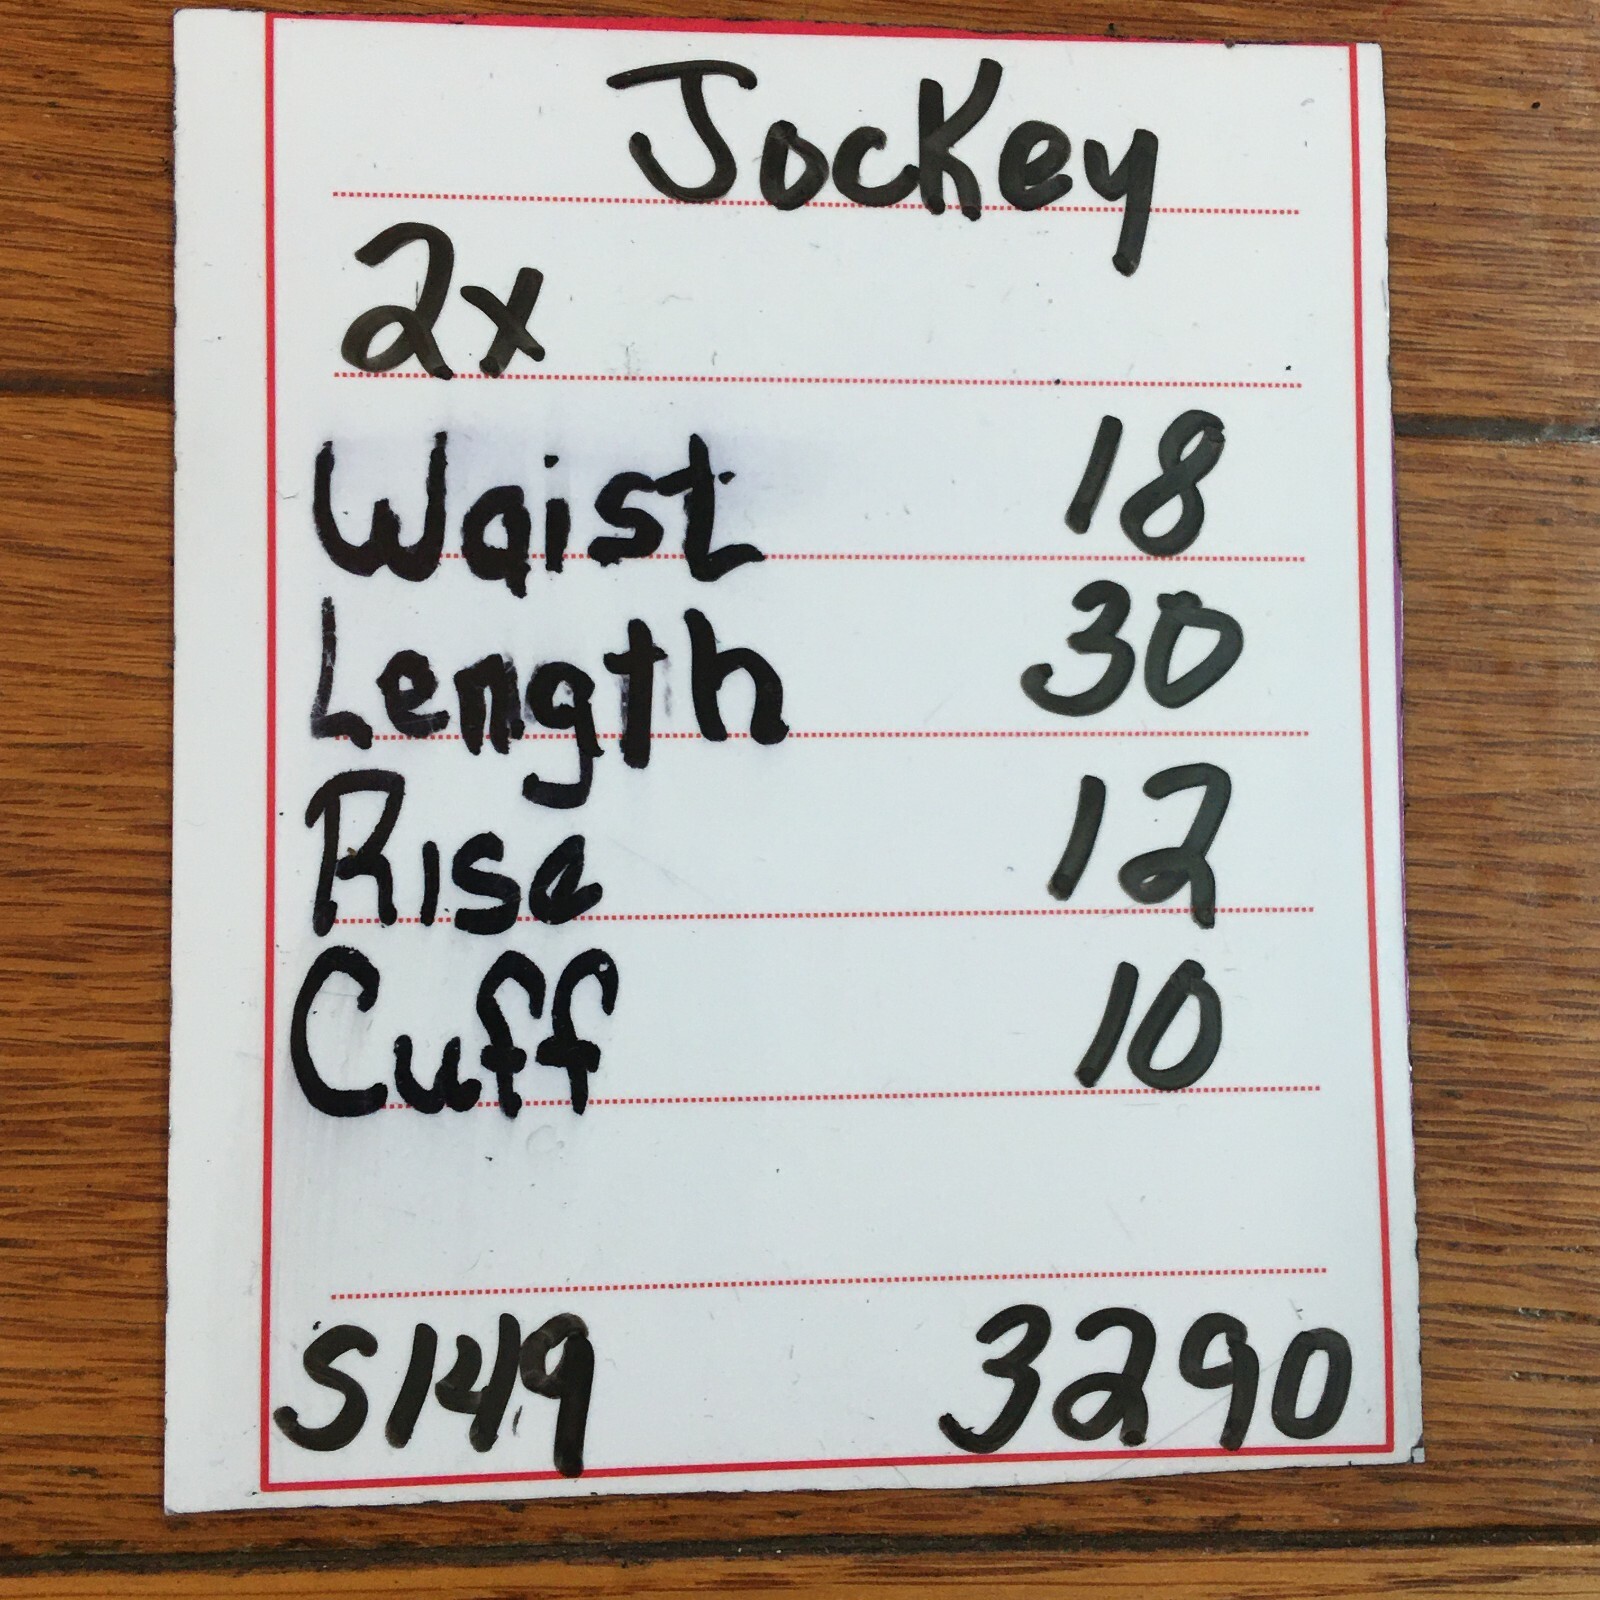 Jockey
2x
Waist 18
Length 30
Rise 12
Cuff 10
S149 3290